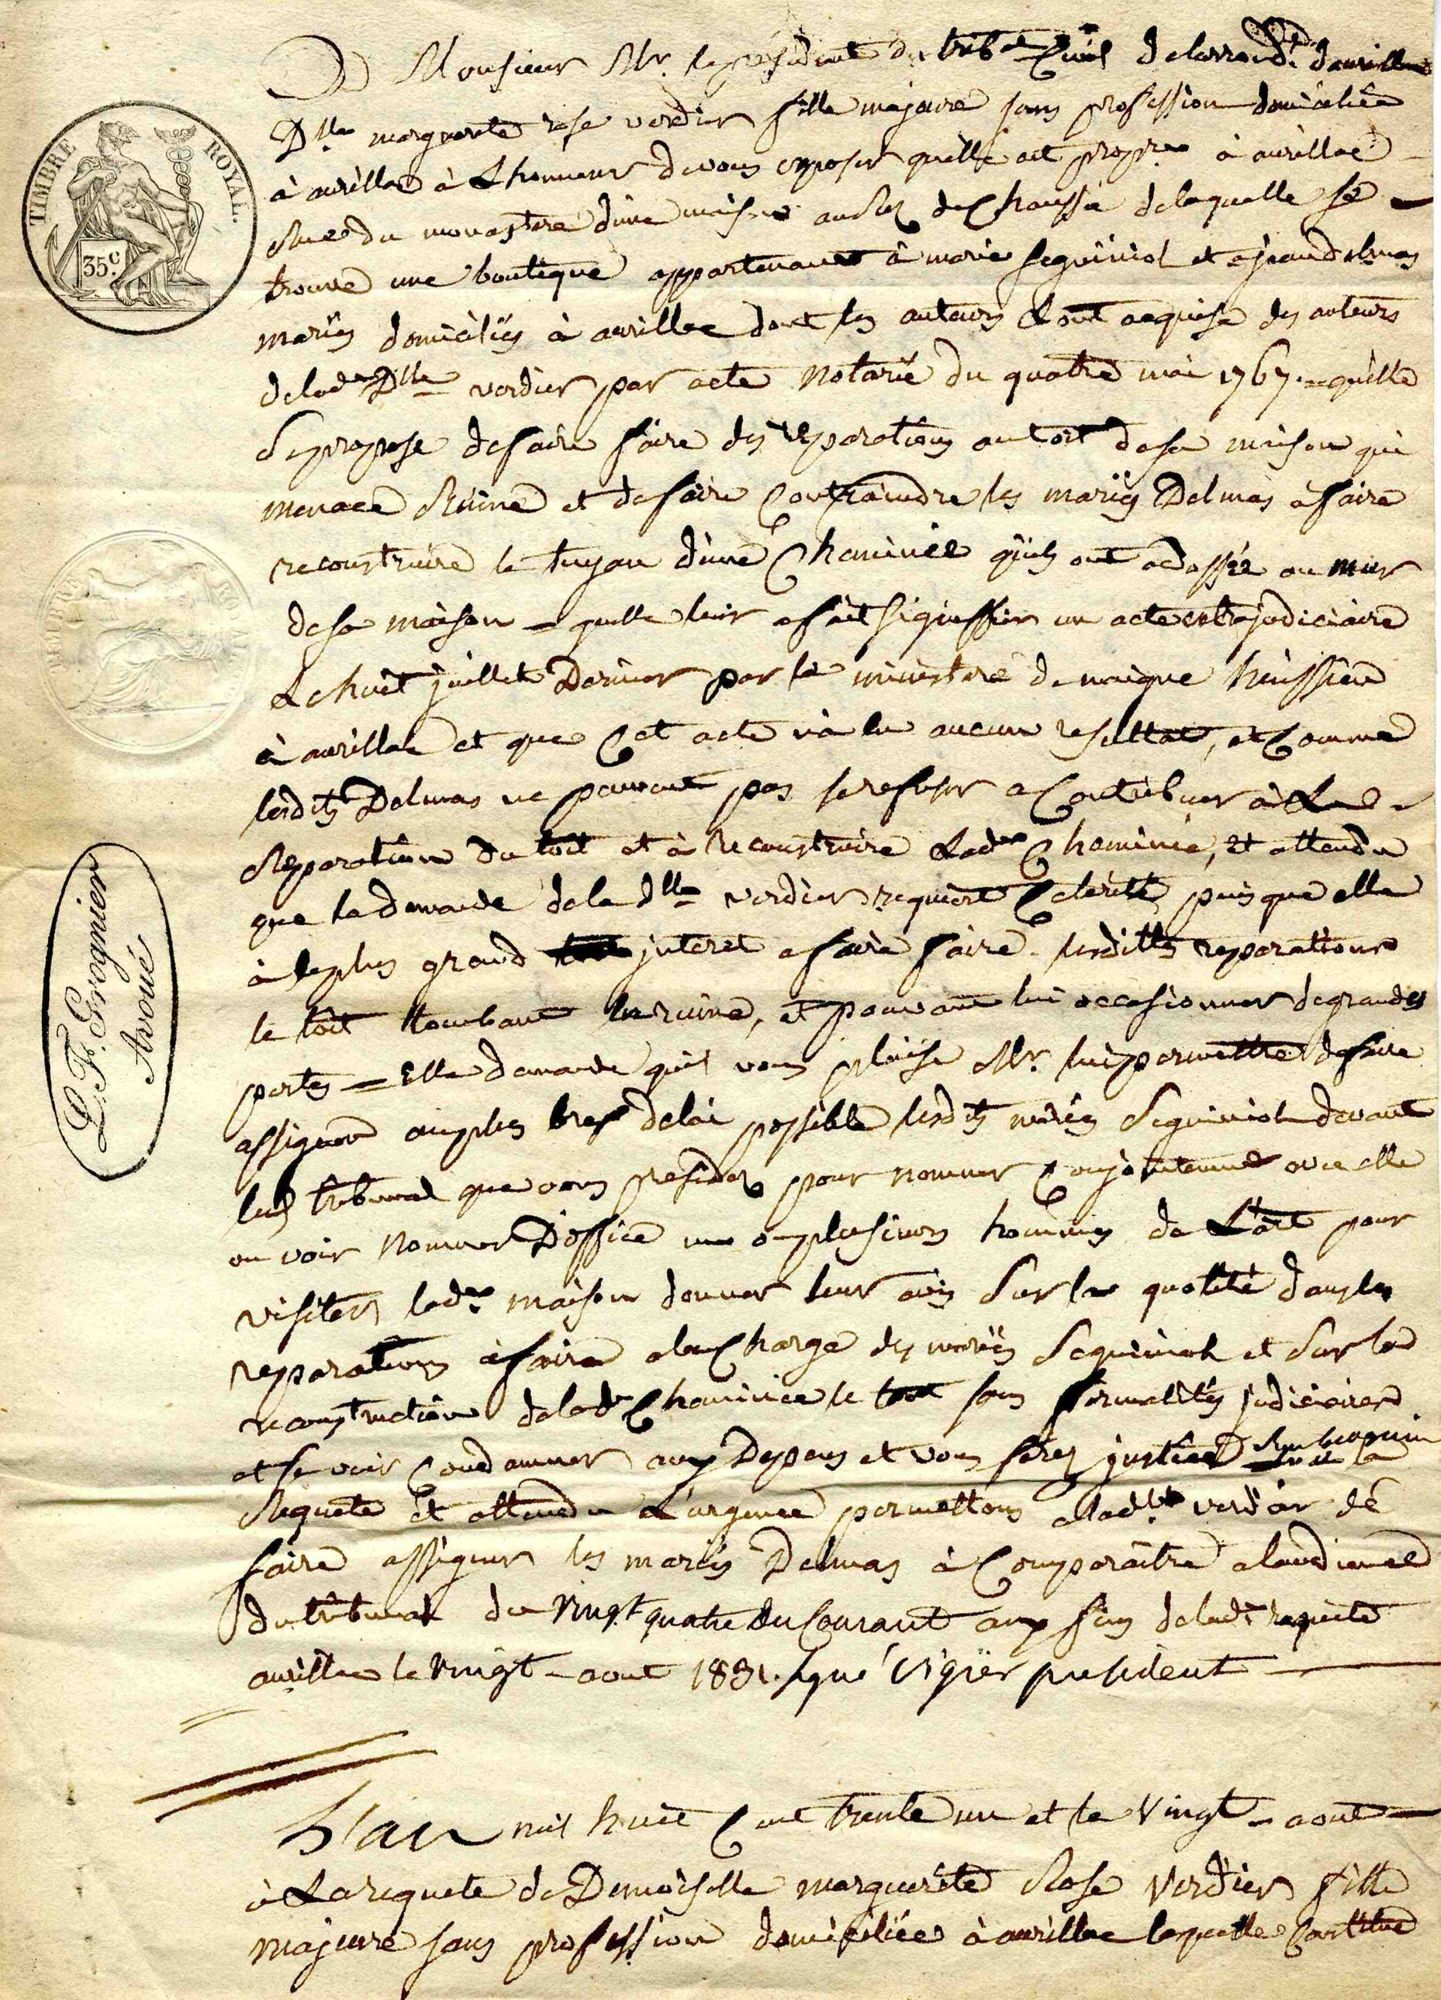 TIMBRE ROYAL.
35.c
L. F. Grognier
Avoué
A Monsieur Mr. le président du trib.al Civil de larrond.t daurillac
Dlle marguerite rose verdier fille majeure sans profession domiciliée
à aurillac à Lhonneur de vous exposer quelle est propre à aurillac
Rue du monastere dune maison au Rez de Chaussée de laquelle se
trouve une boutique appartenant à marie seguiniol et à jean delmas
mariés domiciliés à aurillac dont les auteurs Lont acquise des auteurs
delade Dlle verdier par acte notarié du quatre mai 1767. = quelle
Se propose de faire faire des reparations au toit de sa maison qui
menace Ruine et de faire Contraindre les mariés Delmas à faire
reconstruire le tuyau dune Cheminée quils ont adossée au mur
de sa maison = quelle leur a fait signiffier un acte extrajudiciaire
Le huit juillet Dernier par le ministere de huissier
à aurillac et que Cet acte n'a eu aucun resultat, et Comme
lesdits Delmas ne peuvent pas se refuser a Contribuer à La
Reparation du toit et à reconstruire Lade Cheminée, et attendu
que la demande de la Dlle verdier requiert Celerité, puis que elle
à le plus grand interet a faire faire lesdittes reparations
le toit tombant en ruine, et pouvant lui occasionner de grandes
pertes = Elle demande quil vous plaise Mr. lui permettre de faire
assigner au plus bref delai possible lesdits mariés Seguiniol devant
le tribunal que vous presidez pour nommer Conjointement avec elle
ou voir nommer D'office un ou plusieurs hommes de L'art pour
visiter lade maison donner leur avis Sur la quotité dans les
reparations à faire a la Charge des mariés Seguiniol et Sur la
reconstruction delade Cheminée le tout sans formalités judiciaires
et se voir Condamner aux Depens et vous ferez justice
Requete et attendu L'urgence permettons alade. verdier de
faire assigner les mariés Delmas à Comparaitre a laudience
du tribunal du vingt quatre du Courant aux fins delade requete
aurillac le vingt aout 1831. signé Vigier president
L'an mil huit Cent trente un et le Vingt aout
à La requete de Demoiselle marguerite Rose Verdier fille
majeure sans profession domiciliée à aurillac laquelle Constitue